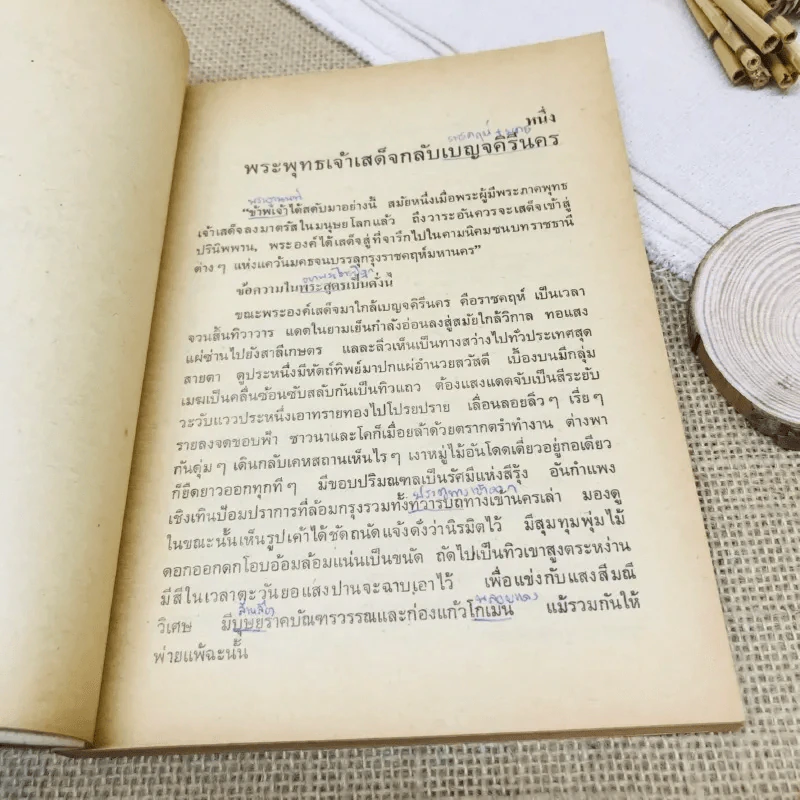 หนึ่ง
ราชคฤห์
พระพุทธเจ้าเสด็จกลับเบญจคิรีนคร
พระอานนท์
"ข้าพเจ้าได้สดับมาอย่างนี้ สมัยหนึ่งเมื่อพระผู้มีพระภาคพุทธ
เจ้าเสด็จลงมาตรัสในมนุษยโลกแล้ว ถึงวาระอันควรจะเสด็จเข้าสู่
ปรินิพพาน, พระองค์ได้เสด็จสู่ที่จาริกไปในคามนิคมชนบทราชธานี
ต่างๆ แห่งแคว้นมคธจนบรรลุกรุงราชคฤห์มหานคร"
ข้อความในพระสูตรเป็นดั่งนี้
ขณะพระองค์เสด็จมาใกล้เบญจคิรีนคร คือราชคฤห์ เป็นเวลา
จวนสิ้นทิวาวาร แดดในยามเย็นกำลังอ่อนลงสู่สมัยใกล้วิกาล ทอแสง
แผ่ซ่านไปยังสาลีเกษตร แลละลิ่วเห็นเป็นทางสว่างไปทั่วประเทศสุด
สายตา ดูประหนึ่งมีหัตถ์ทิพย์มาปกแผ่อำนวยสวัสดี เบื้องบนมีกลุ่ม
เมฆเป็นคลื่นซ้อนซับสลับกันเป็นทิวแถว ต้องแสงแดดจับเป็นสีระยับ
วะวับแววประหนึ่งเอาทรายทองไปโปรยปราย เลื่อนลอยลิ่วๆ เรี่ยๆ
รายลงจดขอบฟ้า ชาวนาและโคก็เมื่อยล้าด้วยตรากตรำทำงาน ต่างพา
กันดุ่มๆ เดินกลับเคหสถานเห็นไรๆ เงาหมู่ไม้อันโดดเดี่ยวอยู่กอเดียว
ก็ยืดยาวออกทุกทีๆ มีขอบปริมณฑลเป็นรัศมีแห่งสีรุ้ง อันกำแพง
เชิงเทินป้อมปราการที่ล้อมกรุงรวมทั้งทวารบถทางเข้านครเล่า มองดู
ในขณะนั้นเห็นรูปเค้าได้ชัดถนัดแจ้งดั่งว่านิรมิตไว้ มีสุมทุมพุ่มไม้
ดอกออกดกโอบอ้อมล้อมแน่นเป็นขนัด ถัดไปเป็นทิวเขาสูงตระหง่าน
มีสีในเวลาตะวันยอแสงปานจะฉาบเอาไว้ เพื่อแข่งกับแสงสีมณี
วิเศษ มีบุษยราคบัณฑรวรรณและก่องแก้วโกเมน แม้รวมกันให้
พ่ายแพ้ฉะนั้น